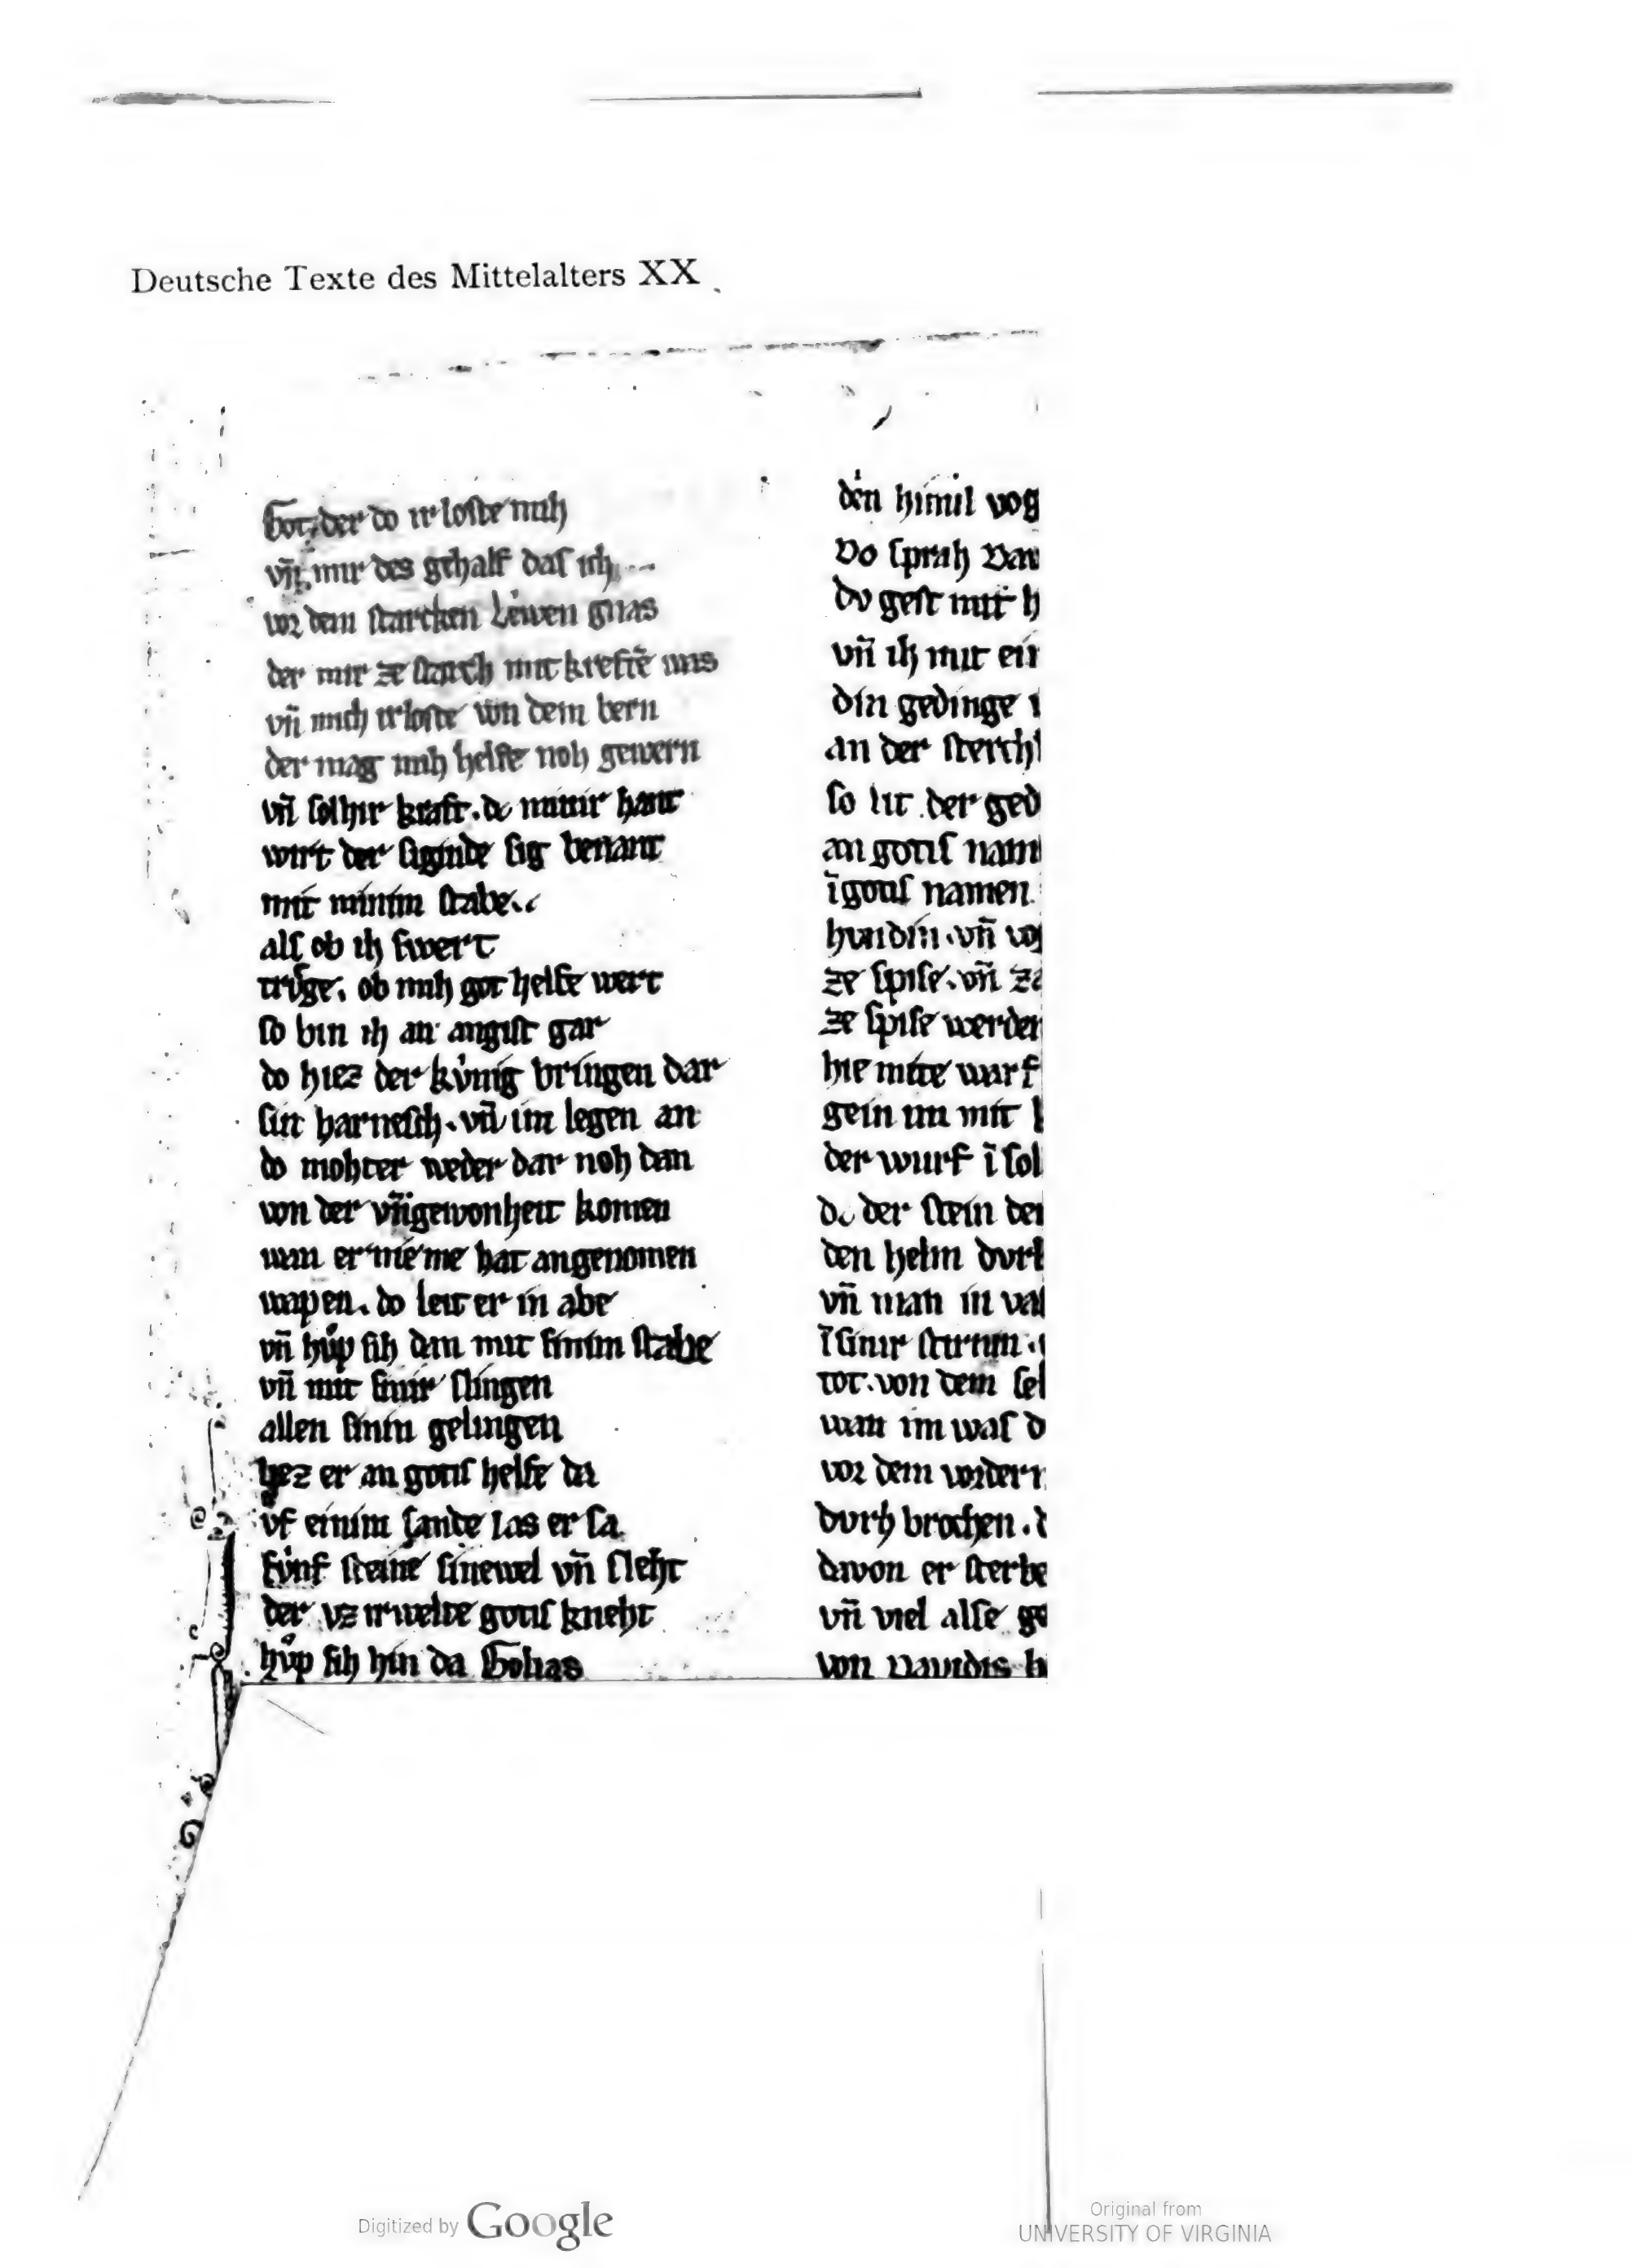 Deutsche Texte des Mittelalters XX
Got, der do ir loſte mih
vn̄ mir des gehalf daſ ich
vor dem ſtarcken Lewen gnas
der mir ze ſtarch mit krefte was
vn̄ mich irloſte von dem bern
der mag mih helfe noh gewern
vn̄ ſolhir kraft. dc minir hant
wirt der ſiginde ſig benant
mit minim ſtabe.
alſ ob ih ſwert
trvͦge. ob mih got helfe wert
ſo bin ih an angiſt gar
do hiez der kv́nig bringen dar
ſin harneſch. vn̄ im legen an
do mohter weder dar noh dan
von der vn̄gewonheit komen
wan er nie me hat angenomen
wapen. do leit er in abe
vn̄ hvͦp ſih dan mit ſinim ſtabe
vn̄ mit ſinir ſlingen
allen ſinin gelingen
liez er an gotiſ helfe da
vf einim ſande las er ſa
fv́nf ſteine ſinewel vn̄ ſleht
der vz irwelte gotiſ kneht
hvͦp ſih hin da Golias
den himil vog
Do ſprah Dau
dv geſt mit h
vn̄ ih mit ein
din gedinge
an der ſterch
ſo lit der ged
an gotiſ nam
ī gotiſ namen.
hvndin. vn̄ vo
ze ſpiſe. vn̄ za
ze ſpiſe werden
hie mite warf
gein im mit
der wurf ī ſol
dc der ſtein den
den helm dvrh
vn̄ man in val
ī ſinir ſtirnin.
tot. von dem ſel
wan im waſ d
vor dem vordern
dvrh brochen. d
davon er ſterbe
vn̄ viel alſe ge
von Dauidis h
Digitized by Google
Original from
UNIVERSITY OF VIRGINIA